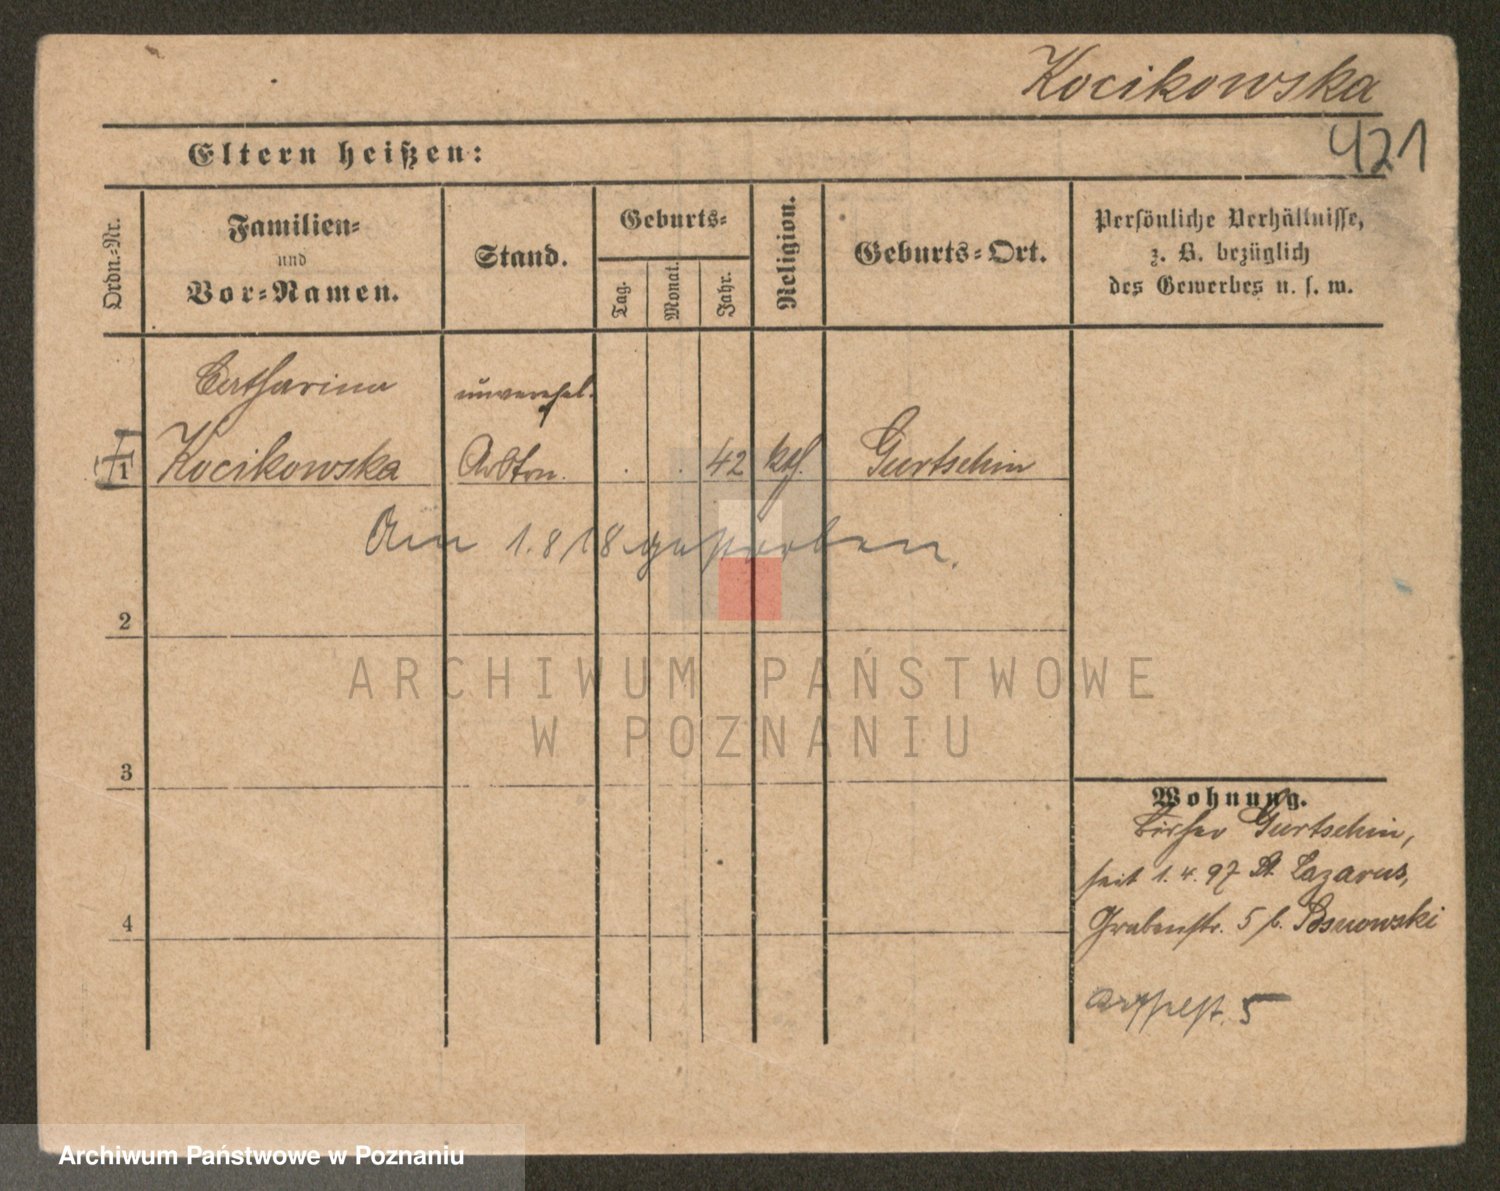 Kocikowska
421
Eltern heißen:
Ordn.-Nr.
Familien-
und
Vor-Namen.
Stand.
Geburts-
Tag.
Monat.
Jahr.
Religion.
Geburts-Ort.
Persönliche Verhältnisse,
z. B. bezüglich
des Gewerbes u. s. w.
Catharina
unverehel.
1 Kocikowska Arbtrn. . . 42 kth. Gurtschin
Am 1.8 18 gestorben.
2
3
4
Wohnung.
Bisher Gurtschin,
seit 1.4.97 St. Lazarus,
Grabenstr. 5 b. Posnowski
5
ARCHIWUM PAŃSTWOWE
W POZNANIU
Archiwum Państwowe w Poznaniu